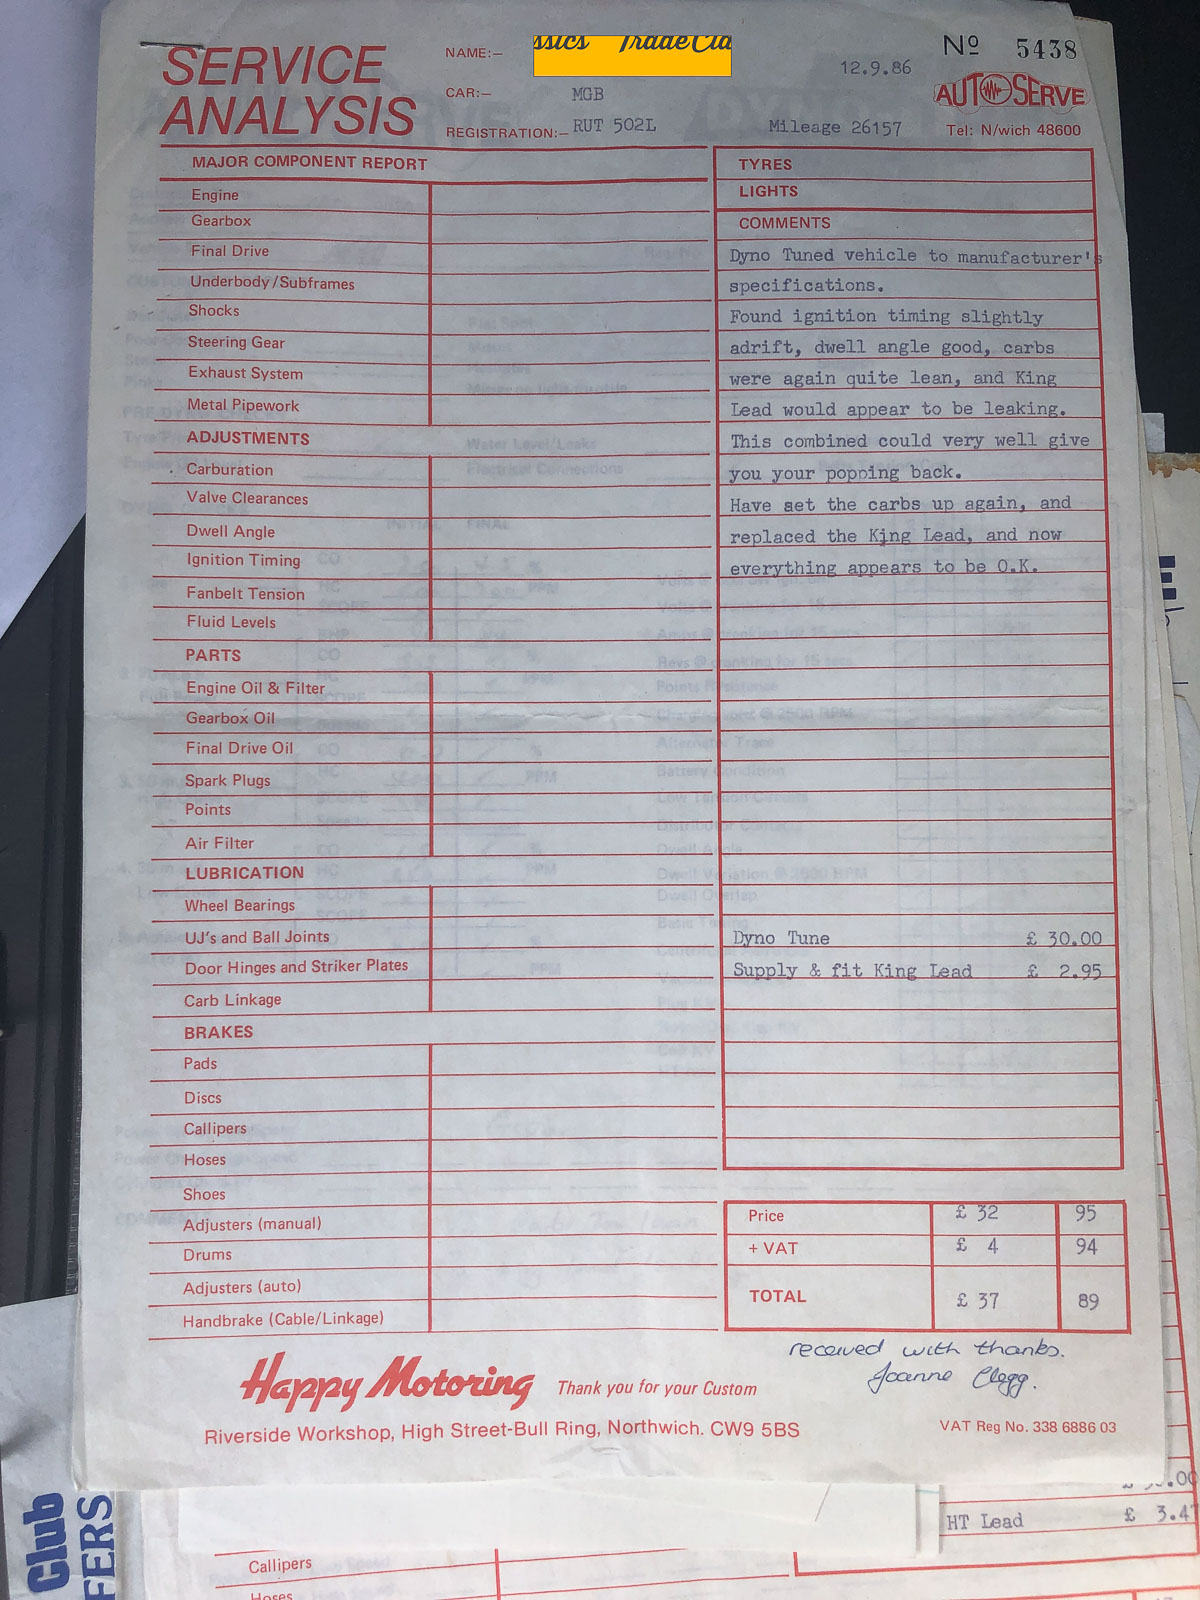 SERVICE
ANALYSIS
NAME:-
ssics TradeCla
12.9.86
Nº 5438
CAR:- MGB
AUTOSERVE
REGISTRATION:- RUT 502L
Mileage 26157
Tel: N/wich 48600
MAJOR COMPONENT REPORT
Engine
Gearbox
Final Drive
Underbody/Subframes
Shocks
Steering Gear
Exhaust System
Metal Pipework
ADJUSTMENTS
Carburation
Valve Clearances
Dwell Angle
Ignition Timing
Fanbelt Tension
Fluid Levels
PARTS
Engine Oil & Filter
Gearbox Oil
Final Drive Oil
Spark Plugs
Points
Air Filter
LUBRICATION
Wheel Bearings
UJ's and Ball Joints
Door Hinges and Striker Plates
Carb Linkage
BRAKES
Pads
Discs
Callipers
Hoses
Shoes
Adjusters (manual)
Drums
Adjusters (auto)
Handbrake (Cable/Linkage)
TYRES
LIGHTS
COMMENTS
Dyno Tuned vehicle to manufacturer's
specifications.
Found ignition timing slightly
adrift, dwell angle good, carbs
were again quite lean, and King
Lead would appear to be leaking.
This combined could very well give
you your popping back.
Have set the carbs up again, and
replaced the King Lead, and now
everything appears to be O.K.
Dyno Tune £ 30.00
Supply & fit King Lead £ 2.95
Price £ 32 95
+ VAT £ 4 94
TOTAL £ 37 89
received with thanks.
Joanne Clegg.
Happy Motoring Thank you for your Custom
Riverside Workshop, High Street-Bull Ring, Northwich. CW9 5BS
VAT Reg No. 338 6886 03
HT Lead £ 3.47
Callipers
Hoses
Club
FERS